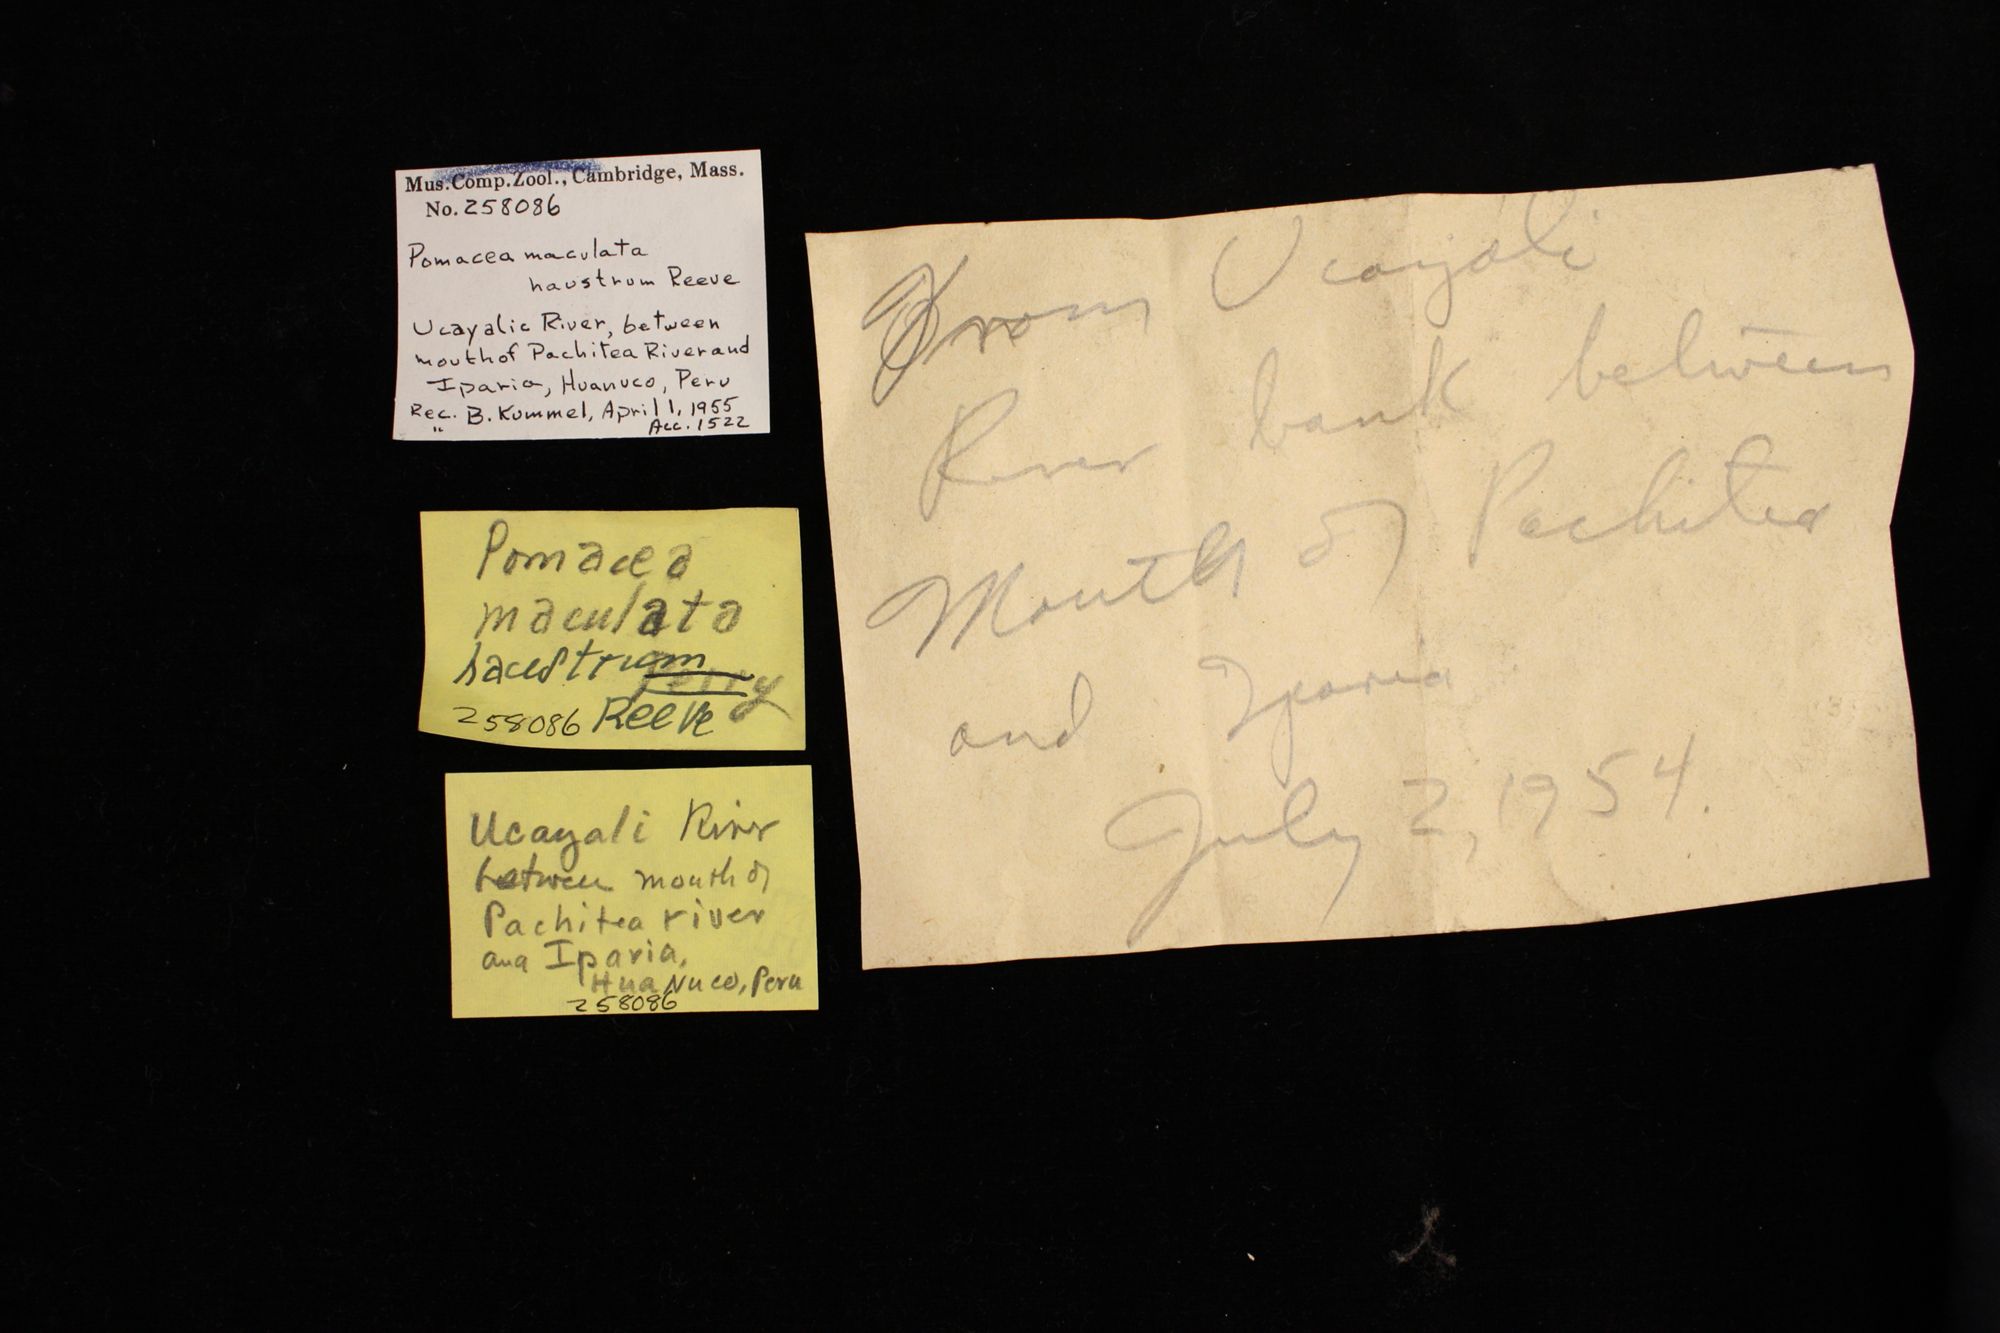 Mus.Comp.Zool., Cambridge, Mass.
No. 258086
Pomacea maculata
haustrum Reeve
Ucayalic River, between
mouth of Pachitea River and
Iparia, Huanuco, Peru
Rec. B. Kummel, April 1, 1955
" Acc. 1522
Pomacea
maculata
haustrum
Perry
258086 Reeve
Ucayali River
between mouth of
Pachitea river
and Iparia,
Huanuco, Peru
258086
From Ucayali
River bank between
Mouth of Pachitea
and Iparia
July 2, 1954.